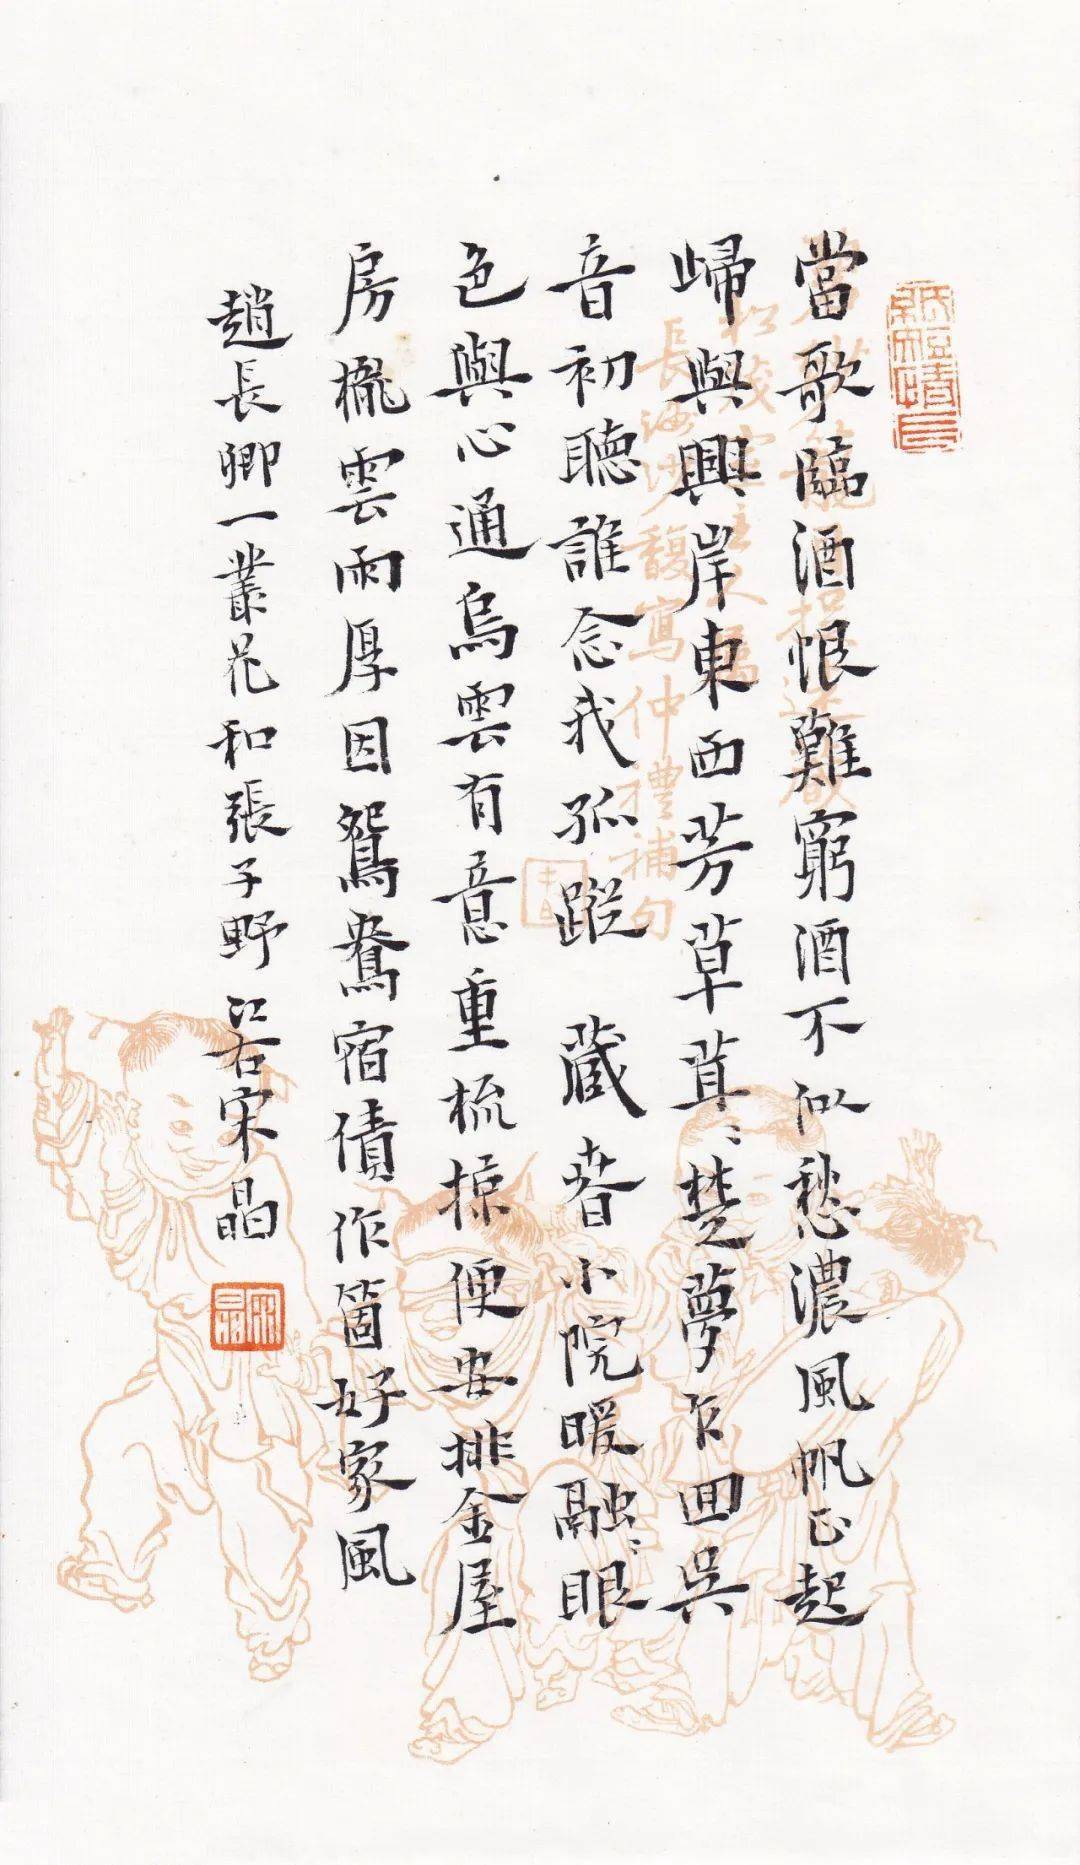 當歌臨酒恨難窮酒不似愁濃風帆正起
歸與興岸東西芳草茸〻楚夢乍回吳
音初聽誰念我孤蹤 藏春小院暖融〻眼
色與心通烏雲有意重梳掠便安排金屋
房櫳雲雨厚因鴛鴦宿債作箇好家風
趙長卿一叢花和張子野 宋晶
長海沙馥寫仲禮補句